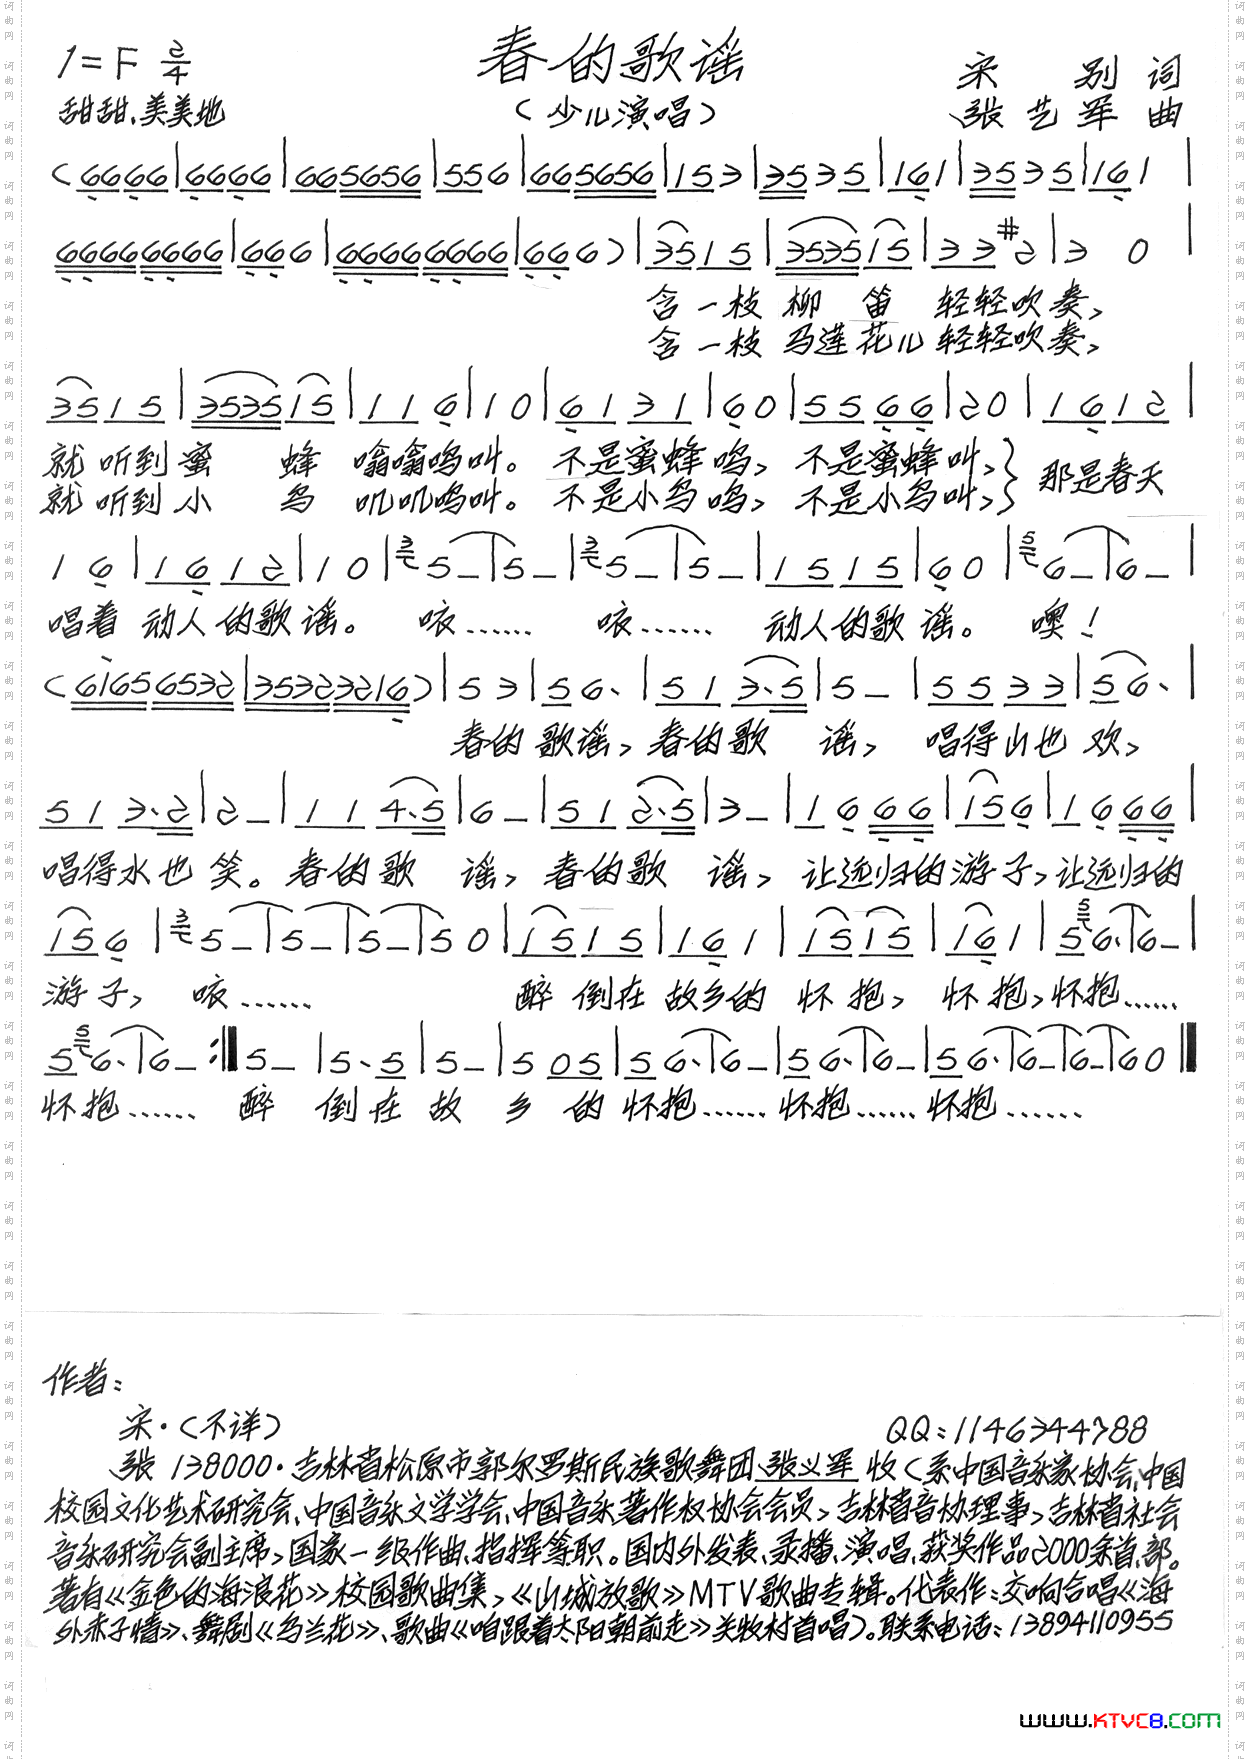 春的歌谣
1=F 2/4
宋 别 词
甜甜、美美地
（少儿演唱）
张艺军 曲
（6666|6666|665656|556|665656|153|3535|161|3535|161|
66666666|666|66666666|666）|3515|353515|33#2|3 0|
含一枝柳 笛 轻轻吹奏，
含一枝马莲花儿轻轻吹奏，
3515|353515|116|10|6131|60|5566|20|1612|
就听到蜜 蜂 嗡嗡鸣叫。不是蜜蜂鸣，不是蜜蜂叫，}那是春天
就听到小 鸟 叽叽鸣叫。不是小鸟鸣，不是小鸟叫，
16|1612|10|5–|5–|5–|5–|1515|60|6–|6–|
唱着动人的歌谣。 咳…… 咳…… 动人的歌谣。 噢！
（61656532|35323216）|53|56·|513·5|5–|5533|56·|
春的歌谣，春的歌 谣， 唱得山也欢，
513·2|2–|114·5|6–|512·5|3–|1666|156|1666|
唱得水也笑。春的歌 谣，春的歌 谣，让远归的游子，让远归的
156|5–|5–|5–|50|1515|161|1515|161|56·|6–|
游子， 咳…… 醉倒在故乡的怀抱， 怀抱，怀抱……
56·|6–:‖5–|5·5|5–|505|56·|6–|56·|6–|56·|6–|6–|60‖
怀抱…… 醉 倒在故 乡 的怀抱……怀抱……怀抱……
作者：
宋·（不详）
QQ：1146344788
张 138000·吉林省松原市郭尔罗斯民族歌舞团、张义军 收（系中国音乐家协会、中国
校园文化艺术研究会、中国音乐文学学会、中国音乐著作权协会会员，吉林省音协理事，吉林省社会
音乐研究会副主席，国家一级作曲、指挥等职。国内外发表、录播、演唱、获奖作品2000余首、部。
著有《金色的海浪花》校园歌曲集，《山城放歌》MTV歌曲专辑。代表作：交响合唱《海
外赤子情》、舞剧《乌兰花》、歌曲《咱跟着太阳朝前走》关牧村首唱）。联系电话：13894110955
www.KTVC8.com
词曲网